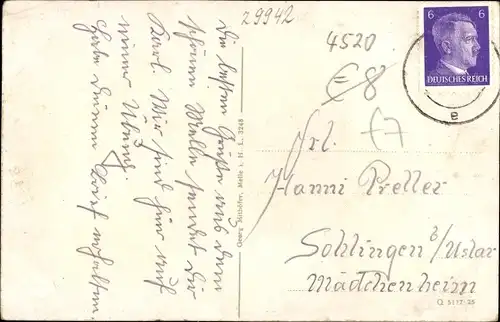 29942
4520
E 8
f7
6 6
DEUTSCHES REICH
e
Die besten Grüße aus dem
schönen Melle sendet Dir
Karl. Wir sind hier auf
einer Übung.
Habe Deinen Brief erhalten.
Georg Mithöfer, Melle i. H. L. 3248
Frl.
Hanni Preller
Sohlingen b/Uslar
Mädchenheim
Q 5117-35